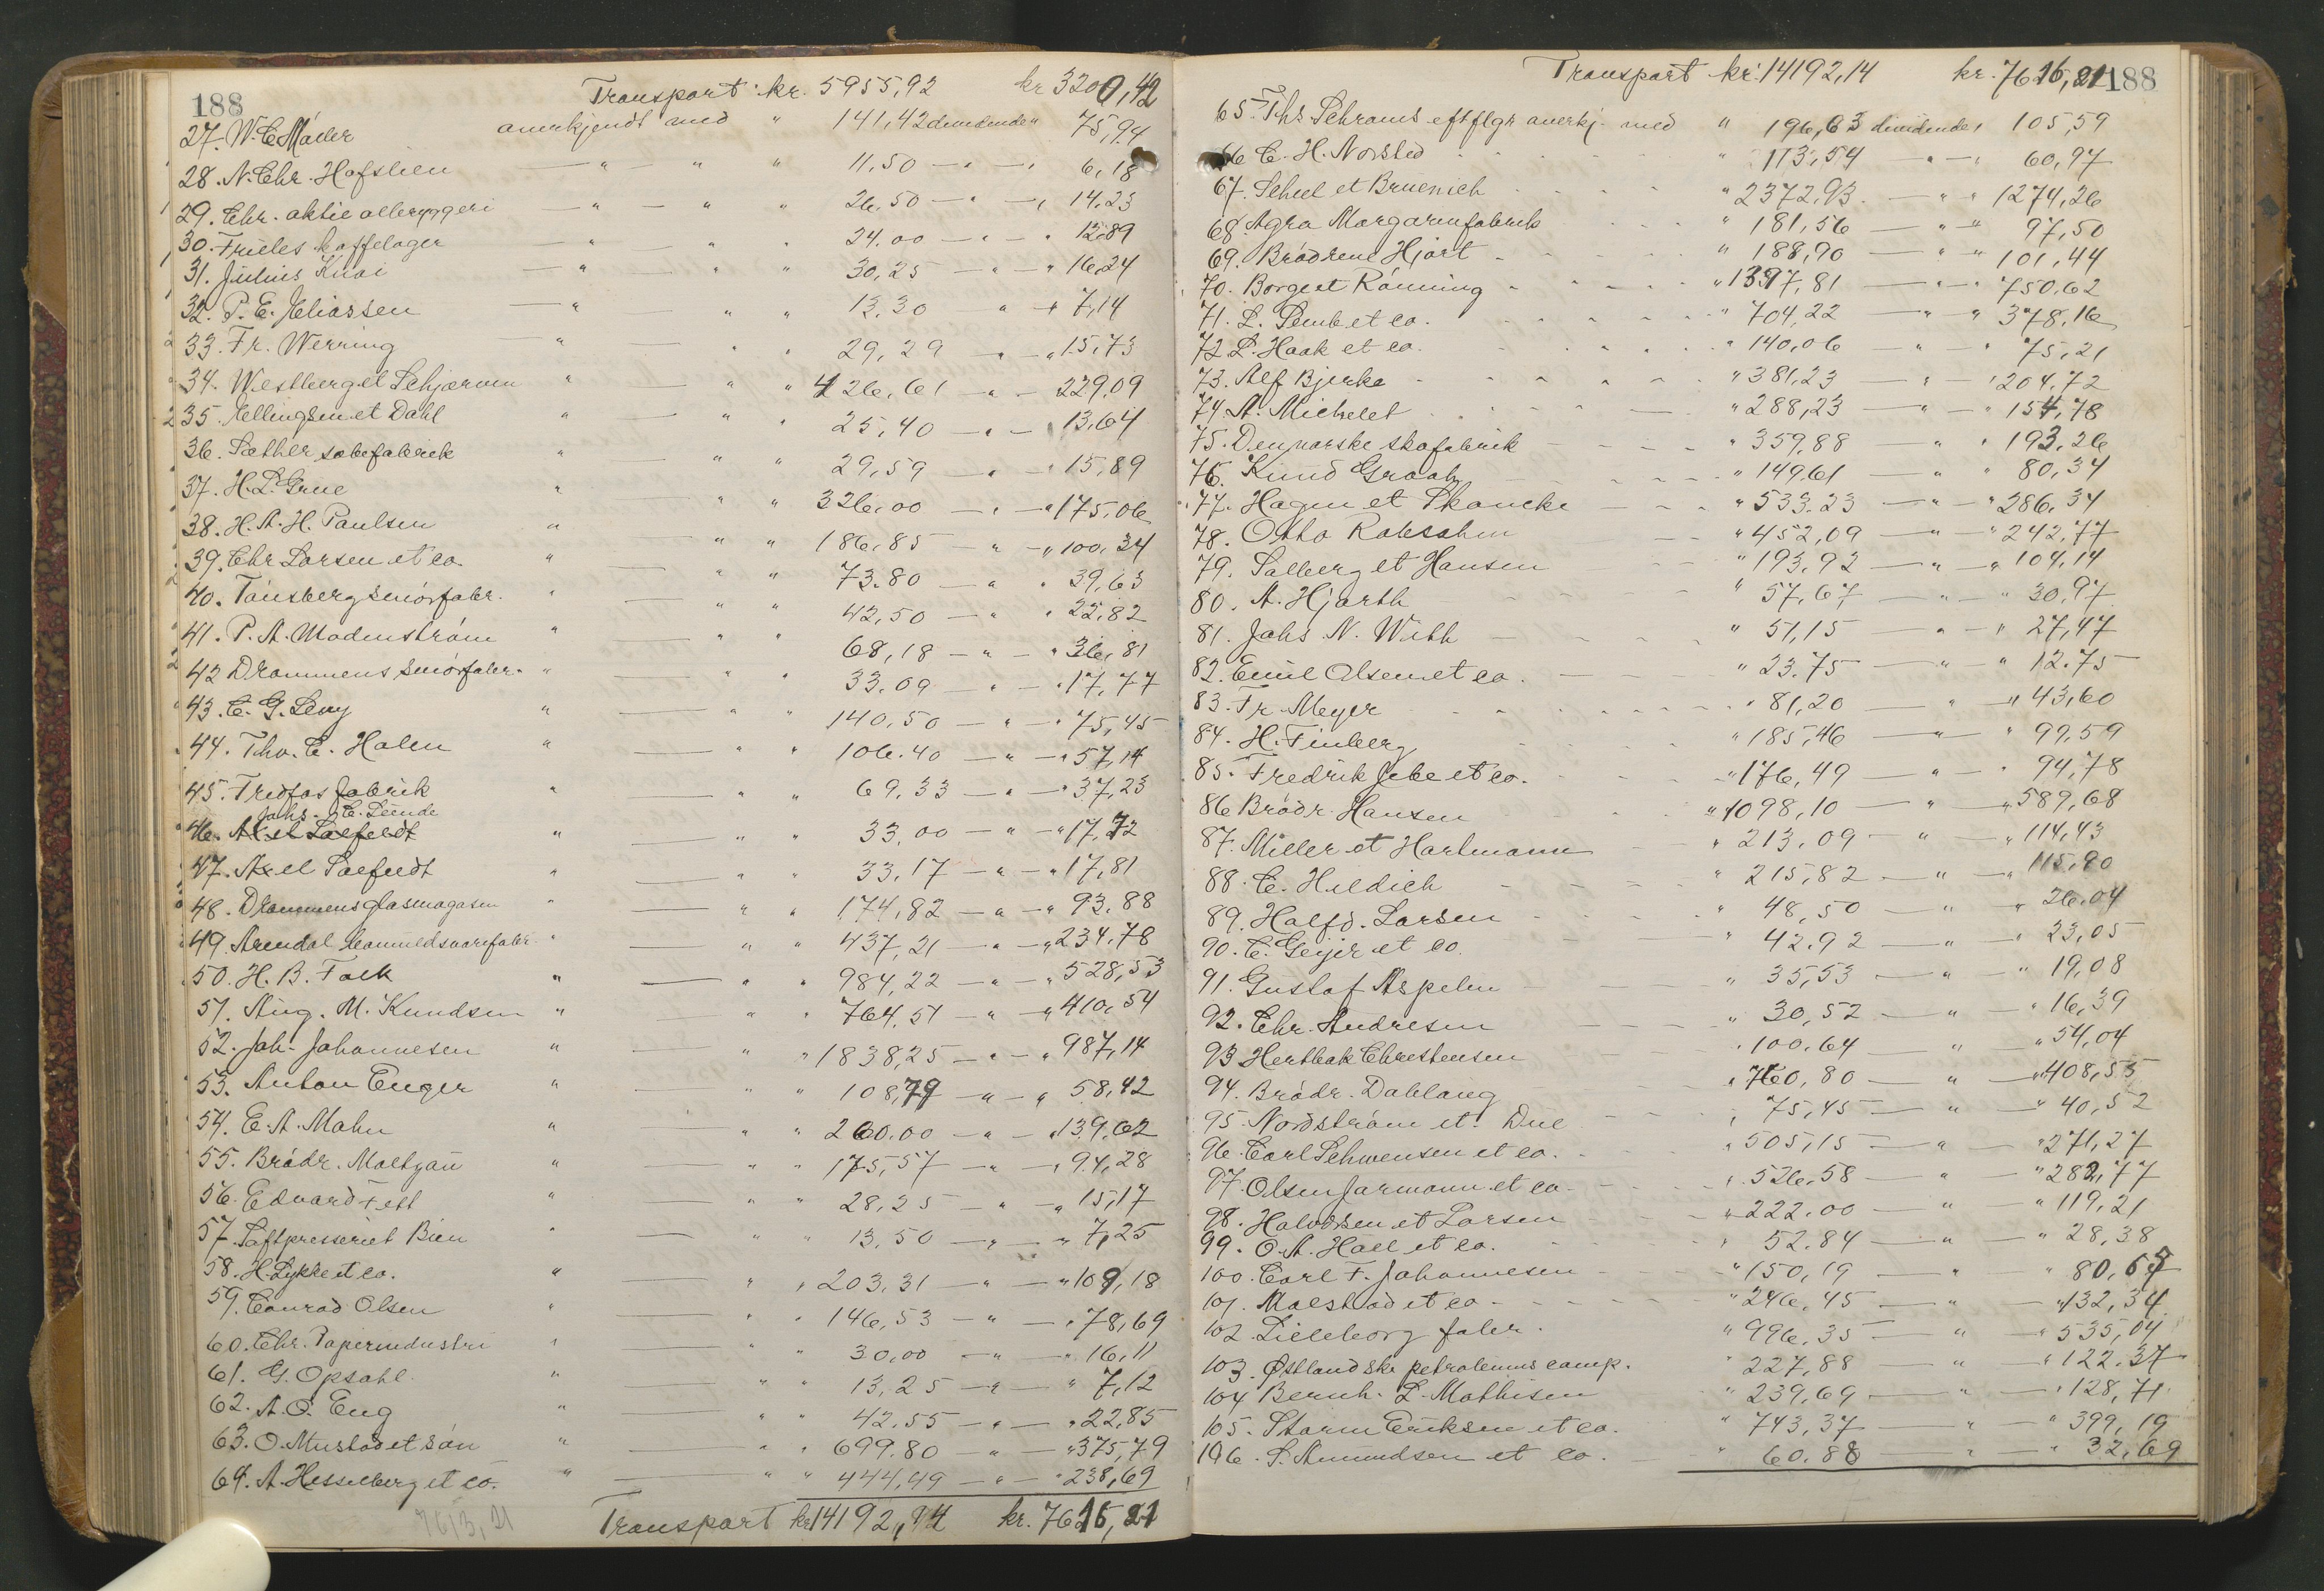 188
Transport kr. 5955,92 kr 3200,42
27. W. C. Møller anerkjendt med " 141,42 dividende " 75,94
28. N. Chr. Hafslien — " — " " 11,50 — " — " 6,18
29. Chr. aktie ølbryggeri — " — " " 26.50 — " — " 14,23
30. Frieles kaffelager — " — " " 24.00 — " — " 12,89
31. Julius Knai — " — " " 30,25 — " — " 16,24
32. P. E. Eliassen — " — " " 13.30 " — " 7,14
33. Fr. Werring — " — " " 29,29 — " — " 15,73
34. Westberg et Schjørven " — " " 426,61 — " — 229,09
35. Ellingsen et Dahl " — " " 25,40 — " — 13,64
36. Sæther sæbefabrik " — " " 29,59 — " — " 15,89
37. H. L. Grue " — " " 326,00 — " — " 175,06
38. H. A. H. Paulsen " — " " 186,85 — " — " 100,34
39. Chr Larsen et co. " — " " 73.80 — " " 39,63
40. Tønsberg smørfabr. " — " " 42,50 — " " 22,82
41. P. A. Modenstrøm " — " " 68,18 — " — " 36,81
42 Drammens smørfabr. " — " " 33.09 — " — " 17,77
43. C. G. Levy " — " " 140,50 — " — " 75,45
44. Thv. C. Holen " — " " 106.40 — " — " 57,14
45. Tredfos fabrik " — " " 69,33 — " — " 37,23
Johs. C. Lunde
46. Axel Saefeldt " — " " 33,00 — " — " 17,72
47. Axel Saefeldt " — " " 33,17 — " — " 17,81
48. Drammens glasmagasin " — " " 174,82 — " — " 93,88
49. Arendal bomuldsvarefabr. " — " " 437,21 — " — " 234,78
50. H. B. Falk " — " " 984,22 — " — " 528,53
51. Aug. M. Knudsen " — " " 764,51 — " — " 410,54
52. Joh. Johannesen " — " " 1838,25 — " — " 987,14
53. Anton Enger " — " " 108,79 — " — " 58,42
54. E. A. Mahn " — " " 260.00 — " — " 139,62
55. Brødr. Maltzau " — " " 175,57 — " — " 94,28
56. Edvard Fett " — " " 28,25 — " — " 15,17
57. Saftpresseriet Bien " — " " 13,50 — " — " 7,25
58. H. Lykke et co. " — " " 203,31 — " — " 109,18
59. Conrad Olsen " — " " 146,53 — " — " 78,69
60. Chr. Papirindustri " — " " 30,00 — " — " 16,11
61. G. Opsahl " — " " 13,25 — " — " 7,12
62. A. O. Eng " — " " 42.55 — " — " 22,85
63. O. Mustad et søn " — " " 699.80 — " — " 375,79
64. A. Hesselberg et co. " — " " 444,49 — " — " 238,69
7613,21
Transport kr 14192,14 kr. 7626,21
Transport kr. 14192,14 kr. 7626,21 188
65. Ths. Schrams eftflgr anerkj. med " 196,63 dividende " 105,59
66 C. H. Norsted " 113,54 — " — " 60,97
67. Scheel et Bruenech " 2372,93. — " " 1274,26
68. Agra Margarinfabrik " 181,56 — " — " 97,50
69. Brødrene Hjort " 188,90 — " — " 101,44
70. Borge et Rønning " 1397,81 — " — " 750,62
71. L. Semb et co. " 704,22 — " " 378,16
72 L. Haak et co. " 140,06 — " — " 75,21
73. Alf Bjerke " 381,23 — " — " 204,72
74. A. Michelet " 288,23 — " — " 154,78
75. Den norske skofabrik " 359,88 " " 193,26
76. Knud Graah " 149,61 — " " 80,34
77. Hagen et Skancke " 533.23 — " — " 286,34
78. Otto Robsahm " 452,09 — " — " 242,77
79. Salberg et Hansen " 193,92 — " — " 104,14
80. A. Hjorth " 57,67 — " — " 30,97
81. Johs N. With " 51,15 — " — " 27,47
82. Emil Olsen et co. " 23.75 — " — " 12.75
83. Fr. Meyer " 81,20 — " — " 43,60
84. H. Finberg " 185,46 — " — " 99,59
85. Fredrik Jebe et co. " 176,49 — " — " 94,78
86 Brødr. Hansen " 1098,10 — " — " 589,68
87. Müller et Hartmann " 213,09 — " — " 114,43
88. C. Hildich " 215,82 — " — " 115,90
89. Halfd. Larsen " 48,50 — " — " 26.04
90. C. Geijer et co. " 42.92 — " — " 23,05
91. Gustaf Aspelin " 35,53 — " — " 19,08
92. Chr. Andresen " 30,52 — " — " 16,39
93 Hertbak Christensen " 100.64 " — " 54,04
94. Brødr. Dahlaug " 760,80 — " — " 408,55
95. Nordstrøm et Due " 75,45 — " — " 40,52
96. Carl Schwensen et co. " 505,15 — " — " 271,27
97. Olsen Jarmann et co. " 526.58 — " — " 282,77
98. Halvorsen et Larsen " 222.00 — " — " 119,21
99. O. A. Hall et co. " 52.84 — " — " 28,38
100. Carl F. Johannesen " 150,19 — " — " 80,67
101. Maelstad et co. " 246,45 — " — " 132,34
102. Lilleborg fabr. " 996,35 — " — " 535,04
103. Østlandske petroleums comp. " 227,88 — " — " 122.37
104 Bernh. L. Mathisen " 239,69 — " — " 128,71
105. Storm Eriksen et co. " 743,37 — " — " 399,19
106. S. Amundsen et co. " 60.88 — " — " 32,69